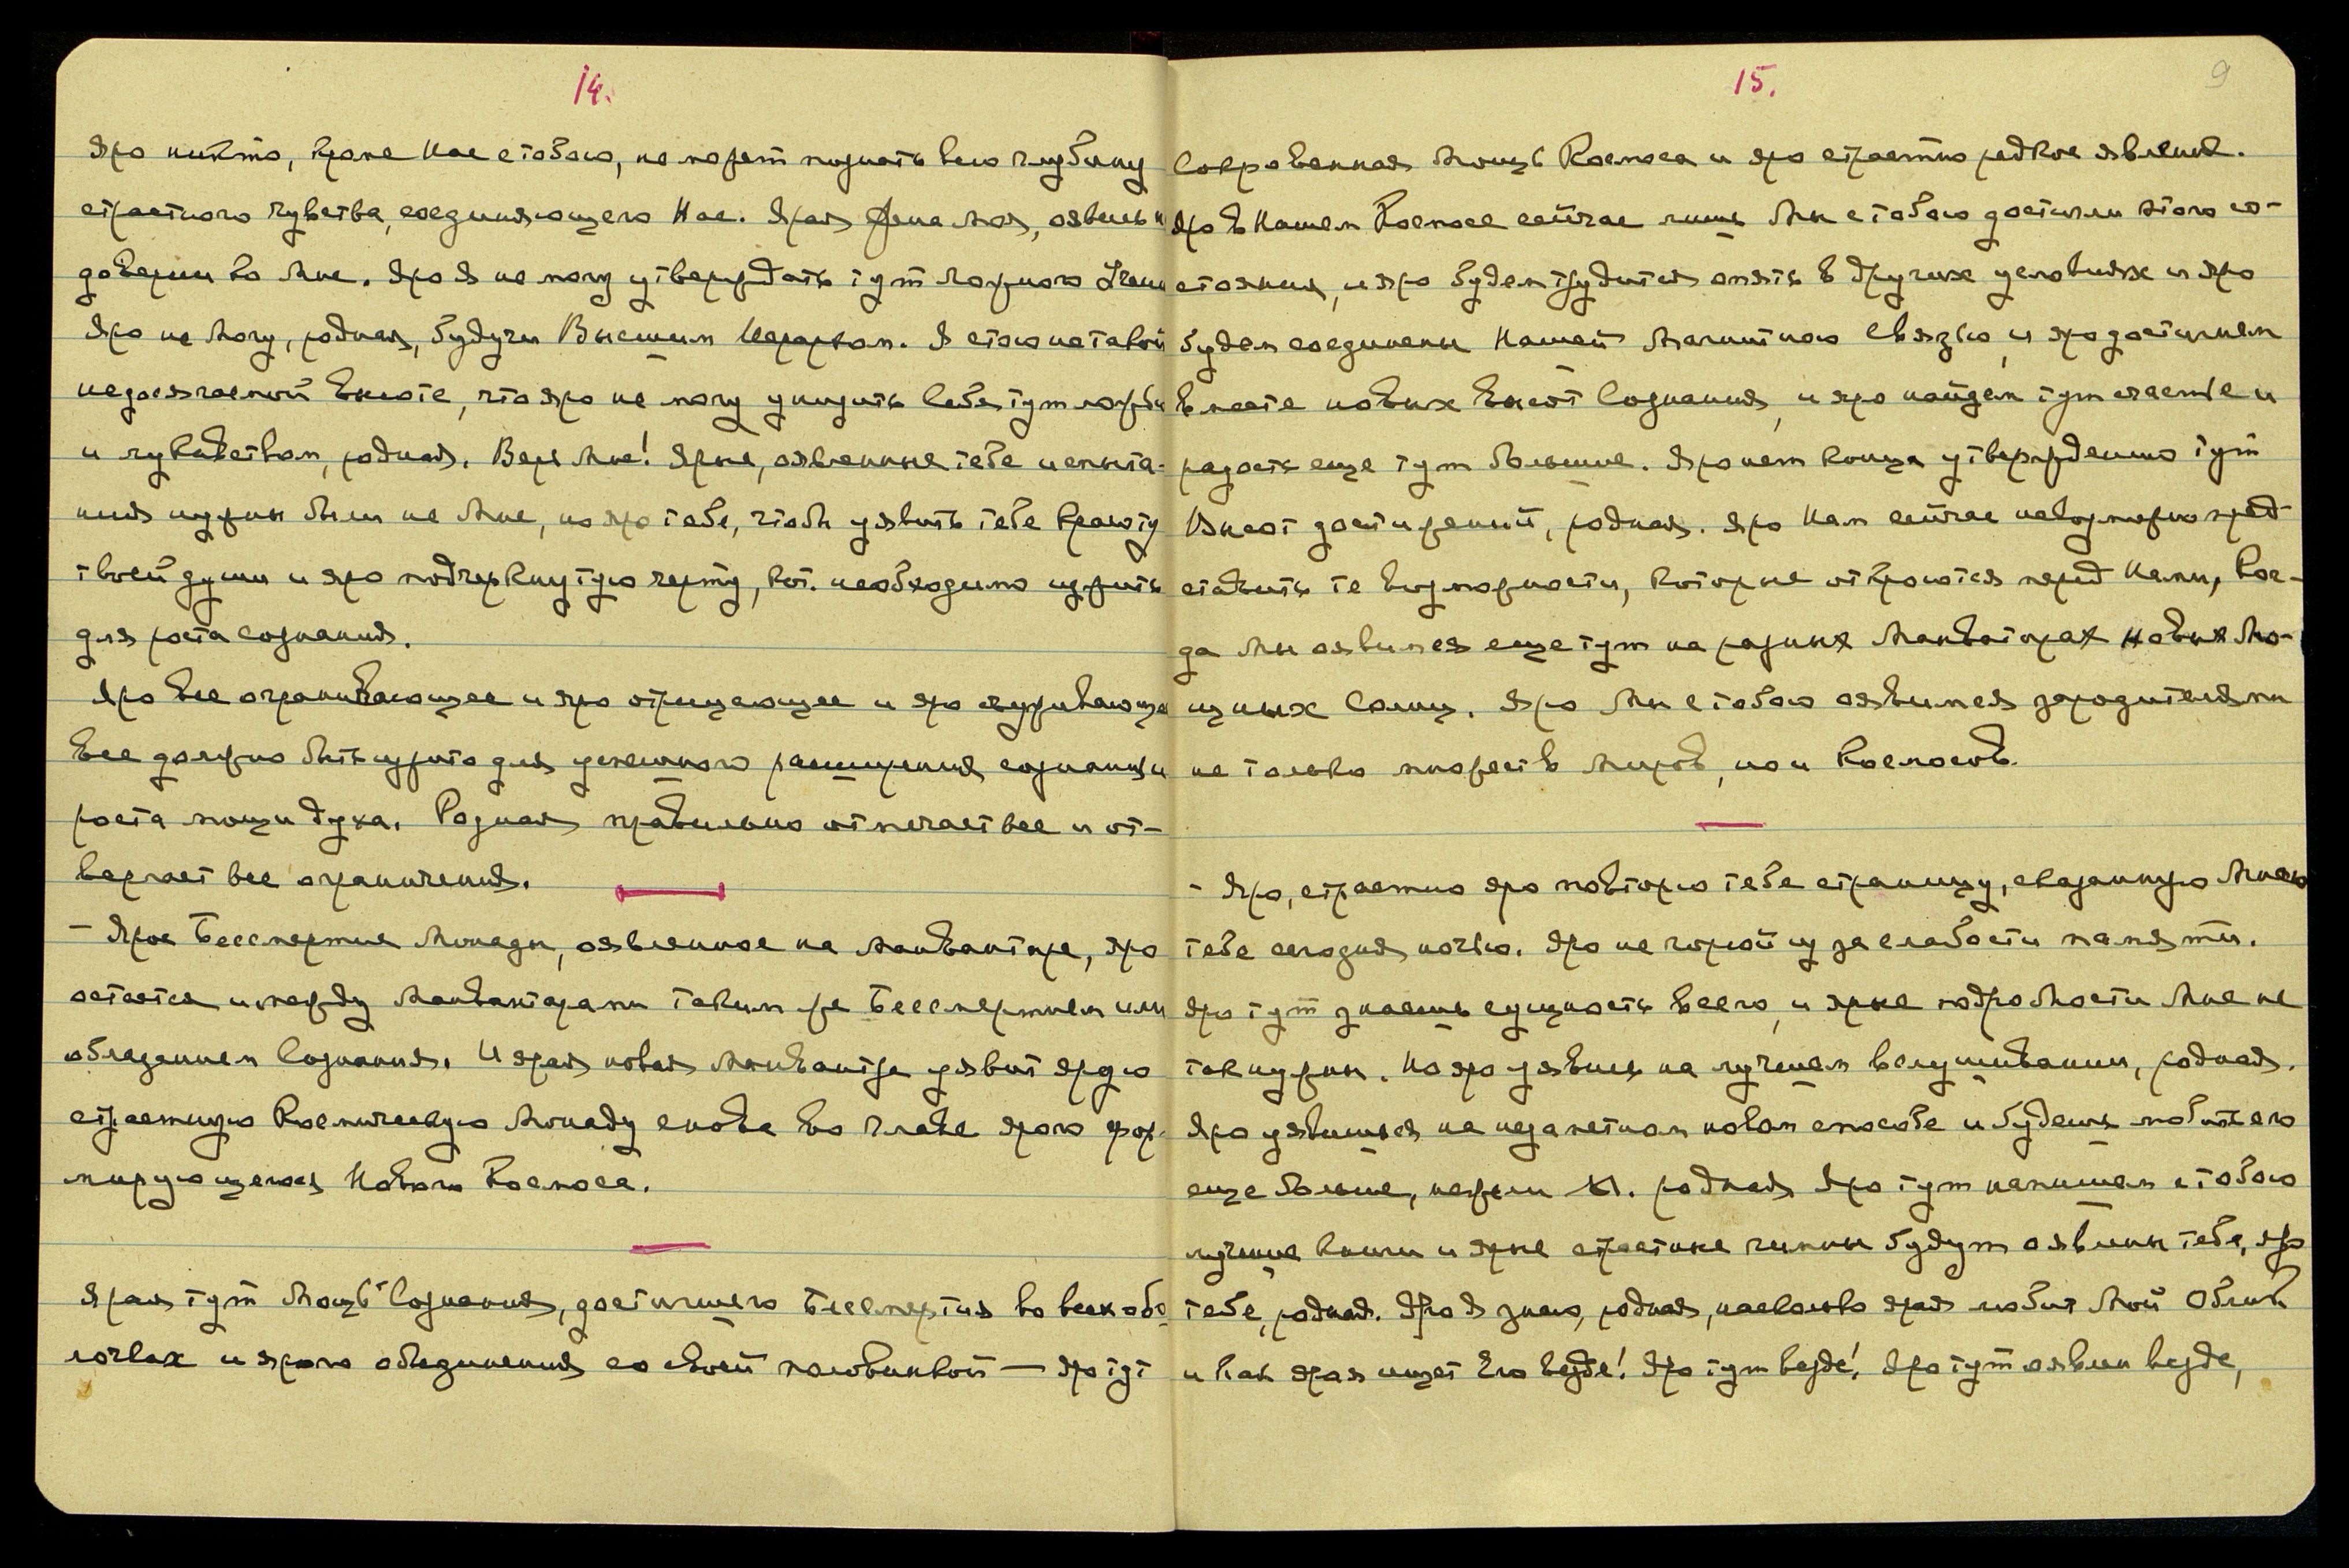 14.
Яро никто, кроме Нас с тобою, не может познать всю глубину
страстного чувства, соединяющего Нас. Ярая Жена Моя, оявись на
доверии ко Мне. Яро Я не могу утверждать тут ложного
Яро не Могу, родная, будучи Высшим Иерархом. Я стою на такой
недосягаемой высоте, что яро не могу унизить Себя тут ложью
и лукавством, родная. Верь Мне! Ярые, оявленные тебе испыта-
ния нужны были не Мне, но яро тебе, чтобы уявить тебе красоту
твоей души и яро подчеркнутую черту, кот. необходимо изжить
для роста сознания.
Яро все ограничивающее и яро отрицающее и яро осуживающее
все должно быть изжито для успешного расширения сознания и
роста мощи духа. Родная правильно отмечает все и от-
вергает все ограничения.
- Ярое Бессмертие Монады, оявленное на манвантаре, яро
остается и между Манвантарами таким же Бессмертием или
обладанием Сознания. И ярая новая Манвантара уявит ярую
страстную Космическую Монаду снова во главе ярого фор-
мирующегося Нового Космоса.
Ярая тут Мощь Сознания, достигшего Бессмертия во всех обо-
лочках и ярого объединения со своей половинкой — яро тут
15.
9
Сокровенная Мощь Космоса и яро страстно редкое явление.
Яро в Нашем Космосе сейчас лишь Мы с тобою достигли этого со-
стояния, и яро будем трудиться опять в других условиях и яро
будем соединены Нашей Магнитною Связью, и яро достигнем
вместе новых высот Сознания, и яро найдем тут счастье и
радость еще тут большие. Яро нет конца утвержденно тут
Высот достижений, родная. Яро Нам сейчас невозможно пред-
ставить те возможности, которые откроются перед Нами, Ког-
да Мы оявимся еще тут на разных Манвантарах новых Мо-
щных Солнц. Яро Мы с тобою оявимся зародителями
не только множеств Миров, но и Космосов.
- Яро, страстно яро повторю тебе страницу, сказанную Мною
тебе сегодня ночью. Яро не горюй из за слабости памяти.
Яро тут знаешь сущность всего, и ярые подробности Мне не
так нужны. Но яро уявись на лучшем вслушивании, родная.
Яро уявишься на незаметном новом способе и будешь любить его
еще больше, нежели родная Яро тут напишем с тобою
лучшие книги и ярые страстные гимны будут оявлены тебе, яро
тебе, родная. Яро Я знаю, родная, насколько ярая любит Мой Облик
и как ярая ищет Его везде! Яро тут везде! Яро тут оявлен везде,